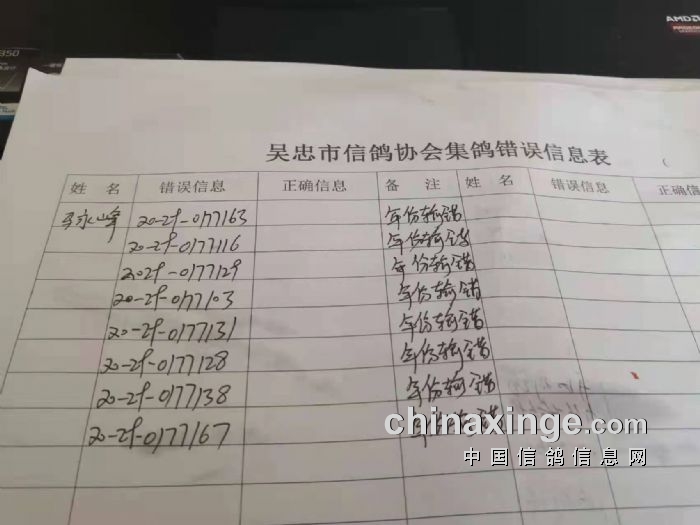 AMD
350
吴忠市信鸽协会集鸽错误信息表
姓 名 错误信息 正确信息 备 注 姓 名 错误信息 正确信
马永峰 20-29-0177163 年份输错
20-29-0177116 年份输错
2029-0177129 年份输错
20-29-0177103 年份输错
20-29-0177131 年份输错
20-29-0177128 年份输错
20-29-0177138 年份输错
20-29-0177167 年份输错
chinaxinge.com
中国信鸽信息网